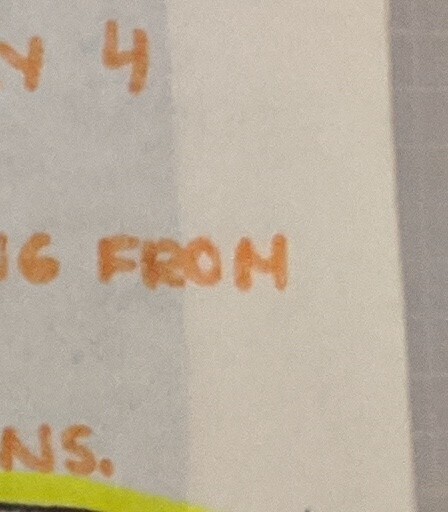 Y 4
NG FROM
NS.